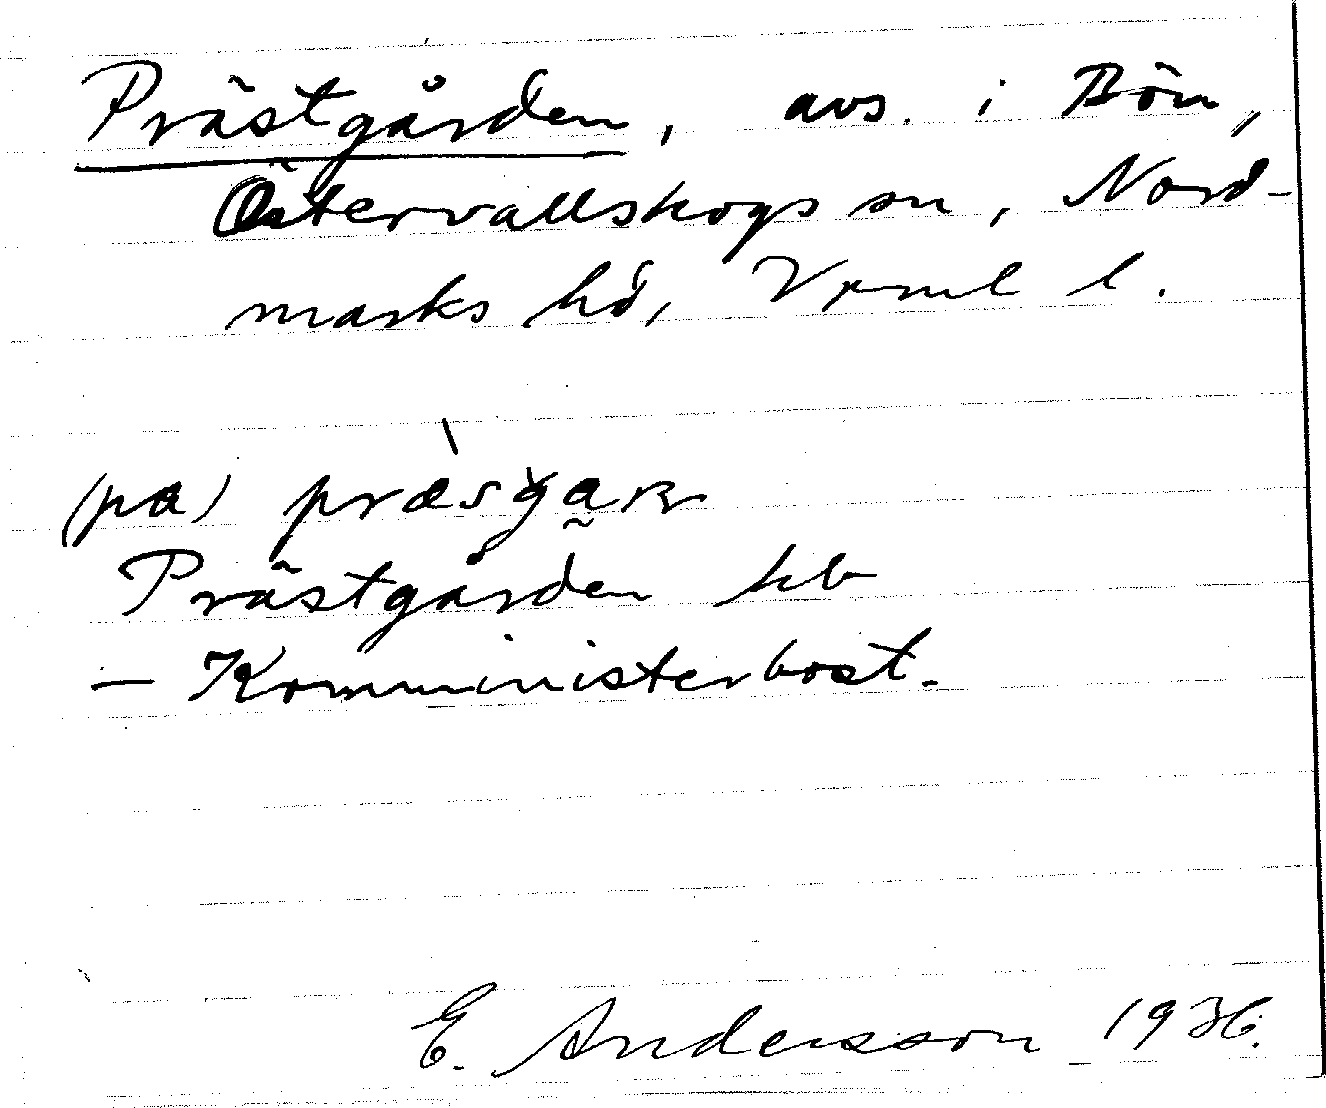 Prästgården, avs. i Bön,
Östervallskogs sn, Nord-
marks hd, Vrml l.
(pa)
Prästgården hb
— Kommmisterbost.
E. Andersson 1936.